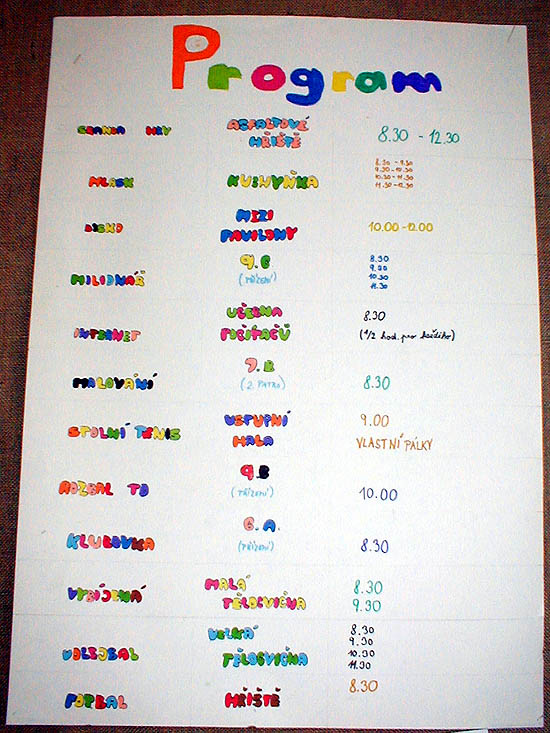 Program
SRANDA HRY ASFALTOVÉ HŘIŠTĚ 8.30 - 12.30
MLASK KUCHYŇKA 8.30 - 9.30
9.30 - 10.30
10.30 - 11.30
11.30 - 12.30
DISKO MEZI PAVILONY 10.00 - 12.00
MILIONÁŘ 9.C (PŘÍZEMÍ) 8.30
9.30
10.30
11.30
INTERNET UČEBNA POČÍTAČŮ 8.30
(1/2 hod. pro každého)
MALOVÁNÍ 7.B (2. PATRO) 8.30
STOLNÍ TENIS VSTUPNÍ HALA 9.00
VLASTNÍ PÁLKY
ROZBAL TO 9.B (PŘÍZEMÍ) 10.00
KLUBOVKA 6.A. (PŘÍZEMÍ) 8.30
VYBÍJENÁ MALÁ TĚLOCVIČNA 8.30
9.30
VOLEJBAL VELKÁ TĚLOCVIČNA 8.30
9.30
10.30
11.30
FOTBAL HŘIŠTĚ 8.30